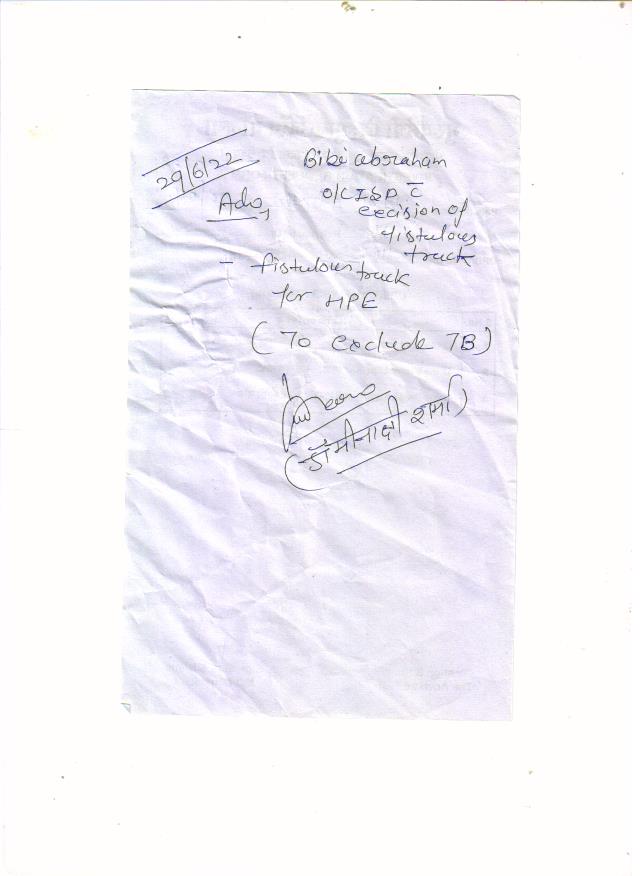 29/6/22
Bibi abraham
Adv,
O/C I&D c̅
excision of
fistulous
truck
- fistulous truck
for HPE
(To exclude TB)
(डॉ मीनाक्षी शर्मा)